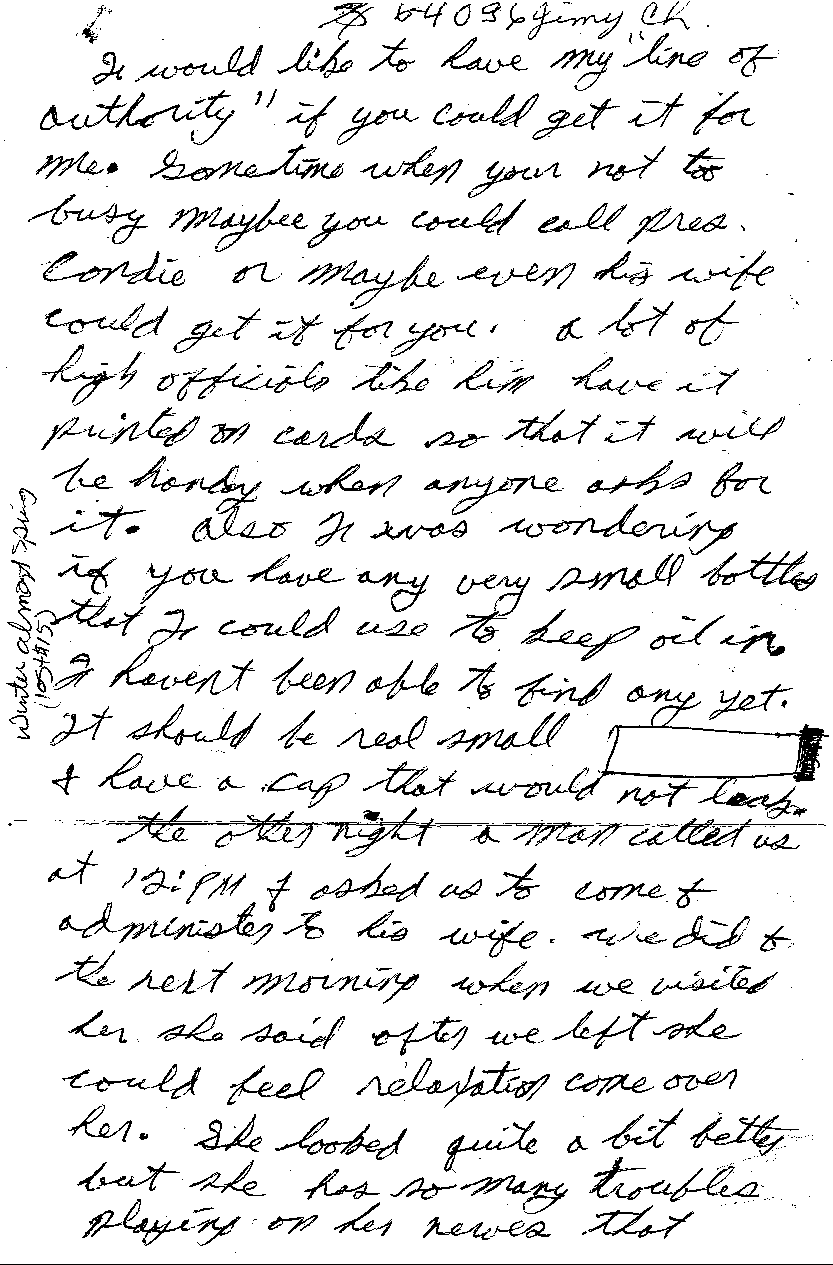 64096 Jimy Ch.
I would like to have my "line of
authority" if you could get it for
me. Sometime when your not too
busy maybee you could call pres.
Condie or maybe even his wife
could get it for you. a lot of
high officials like him have it
printed on cards so that it will
be handy when anyone asks for
it. also I was wondering
if you have any very small bottles
that I could use to keep oil in.
I havent been able to find any yet.
It should be real small
& have a cap that would not leak.
the other night a man called us
at 12:PM & asked us to come &
administer to his wife. we did &
the next morning when we visited
her she said after we left she
could feel relaxation come over
her. She looked quite a bit better
but she has so many troubles
playing on her nerves that
Winter almost Spring